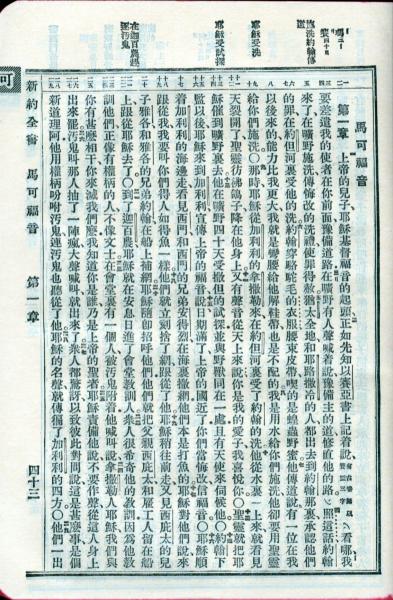 施洗約翰傳道
耶穌受洗
耶穌受試探
在迦百農趕逐污鬼
馬可福音
第一章 上帝的兒子、耶穌基督福音的起頭正如先知以賽亞書上記着說看哪我
要差遣我的使者在你前面預備道路在曠野有人聲喊着說豫備主的道修直他的路○照這話約翰
來了在曠野施洗傳悔改的洗禮使罪得赦猶太全地和耶路撒冷的人都出去到約翰那裏承認他們
的罪在約但河裏受他的洗約翰穿駱駝毛的衣服腰束皮帶喫的是蝗蟲野蜜他傳道說有一位在我
以後來的能力比我更大我就是彎腰給他解鞋帶也是不配的我是用水給你們施洗他卻要用聖靈
給你們施洗○那時耶穌從加利利的拿撒勒來在約但河裏受了約翰的洗他從水裏一上來就看見
天裂開了聖靈彷彿鴿子降在他身上又有聲音從天上來說你是我的愛子我喜悅你○聖靈就把耶
穌催到曠野裏去他在曠野四十天受撒但的試探並與野獸同在一處且有天使來伺候他○約翰下
監以後耶穌來到加利利宣傳上帝的福音說日期滿了上帝的國近了你們當悔改信福音○耶穌順
着加利利的海邊走看見西門和西門的兄弟安得烈在海裏撒網他們本是打魚的耶穌對他們說來
跟從我我要叫你們得人如得魚一樣他們就立刻捨了網跟從了他耶穌稍往前走又見西庇太的兒
子雅各和雅各的兄弟約翰在船上補網耶穌隨卽招呼他們他們就把父親西庇太和雇工人留在船
上跟從耶穌去了○到了迦百農耶穌就在安息日進了會堂教訓人衆人很希奇他的教訓因爲他教
訓他們正像有權柄的人不像文士在會堂裏有一個人被污鬼附着他喊叫說拿撒勒人耶穌我們與
你有甚麼相干你來滅我們麼我知道你是誰乃是上帝的聖者耶穌責備他說不要作聲從這人身上
出來罷污鬼叫那人抽了一陣瘋大聲喊叫就出來了衆人都驚訝以致彼此對問說這是甚麼事是個
新道理阿他用權柄吩咐污鬼連污鬼也聽從了他耶穌的名聲就傳徧了加利利的四方○他們一出
新約全書 馬可福音 第一章 四十三
可